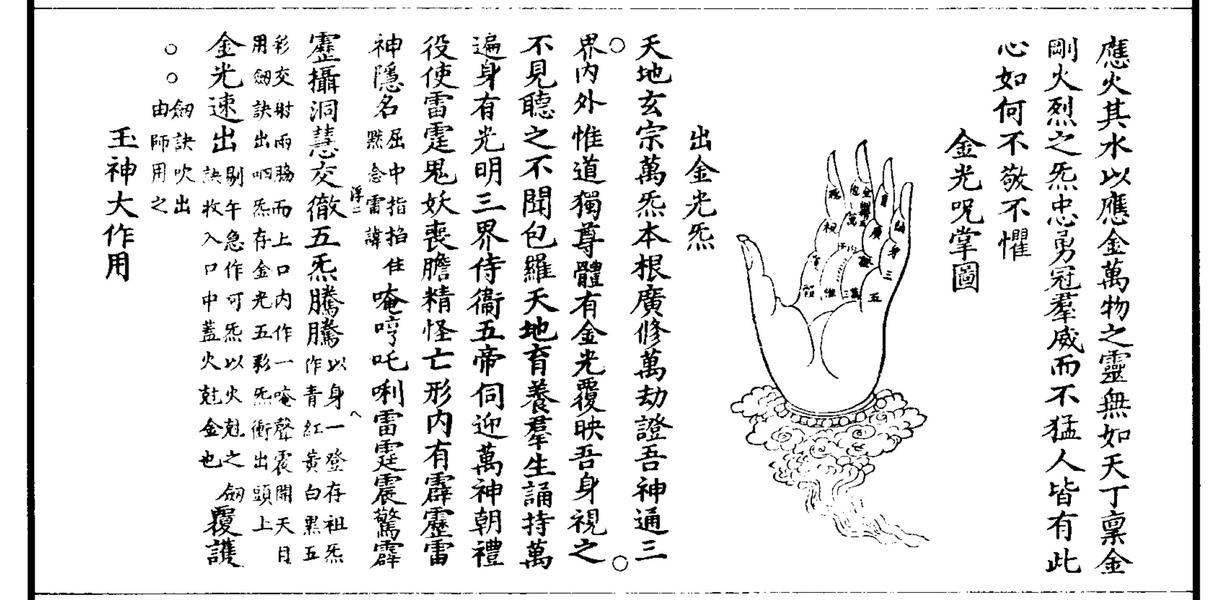 應火其水以應金萬物之靈無如天丁稟金
剛火烈之炁忠勇冠羣威而不猛人皆有此
心如何不敬不懼
金光呪掌圖
出金光炁
天地玄宗萬炁本根廣修萬劫證吾神通三
界內外惟道獨尊體有金光覆映吾身視之
不見聽之不聞包羅天地育養羣生誦持萬
遍身有光明三界侍衞五帝伺迎萬神朝禮
役使雷霆鬼妖喪膽精怪亡形內有霹靂雷
神隱名屈中指掐住默念雷諱唵哼吒唎雷霆震驚霹
靂攝洞慧交徹五炁騰騰以身一登存祖炁作青紅黃白黑五
彩交射兩腸而上口內作一唵聲震開天目
用劒訣出呬炁存金光五彩炁衝出頭上
金光速出剔午急作可炁以火尅之劒訣收入口中蓋火尅金也覆護
○○劒訣吹出由師用之
玉神大作用